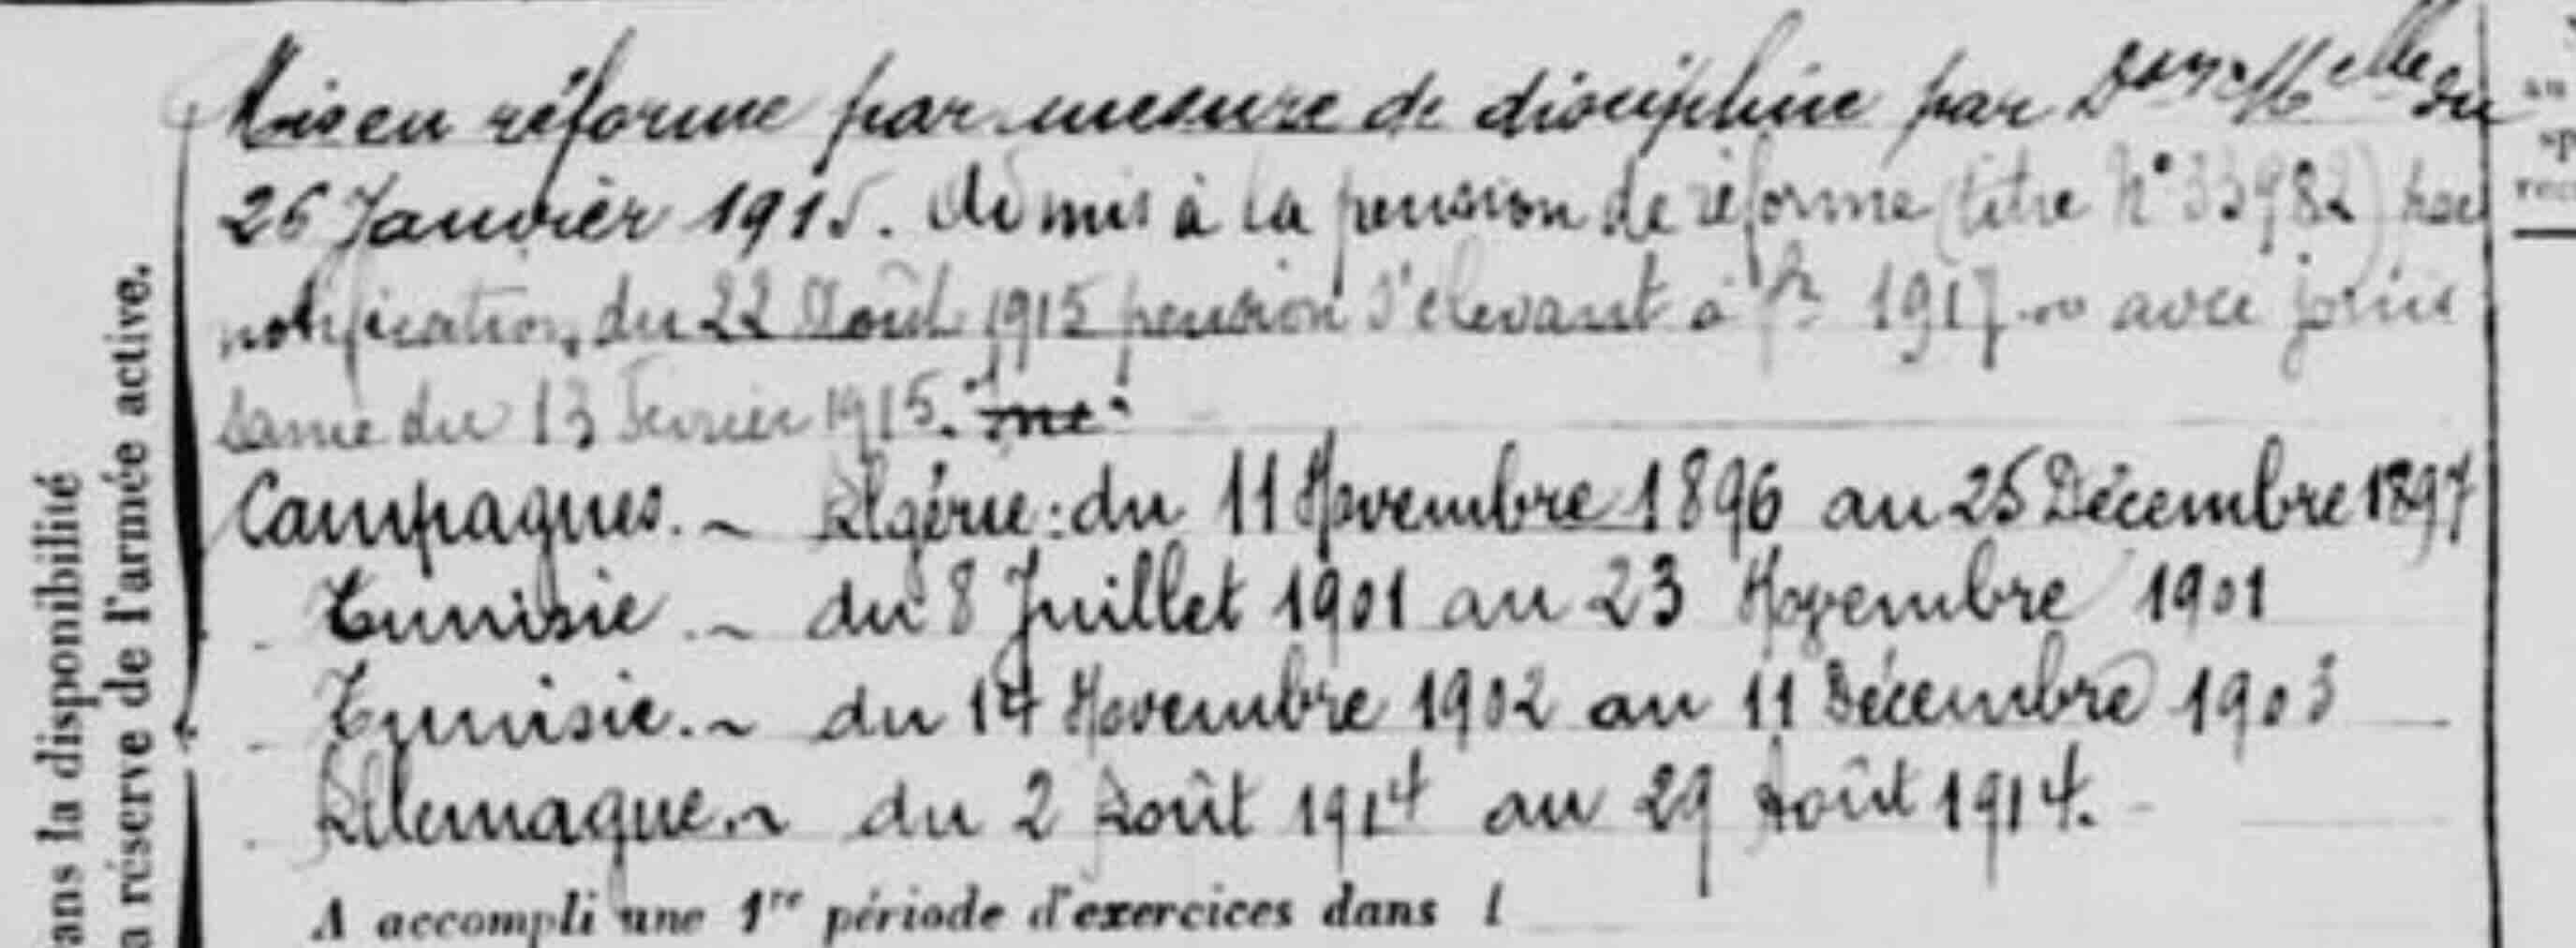 Mis en réforme par mesure de discipline par Don Melle du
26 Janvier 1915. Admis à la pension de réforme (titre N° 33982) par
notification du 22 Août 1915 pension s'élevant à fr 1917 avec jouis
sance du 13 Février 1915.
Campagnes. ~ Algérie: du 11 Novembre 1896 au 25 Décembre 1897
Tunisie ~ du 8 Juillet 1901 au 23 Novembre 1901
Tunisie. ~ du 14 Novembre 1902 au 11 Décembre 1903
Allemagne. ~ du 2 Août 1914 au 29 Août 1914.
A accompli une 1re période d'exercices dans l
ans la disponibilité
a réserve de l'armée active.